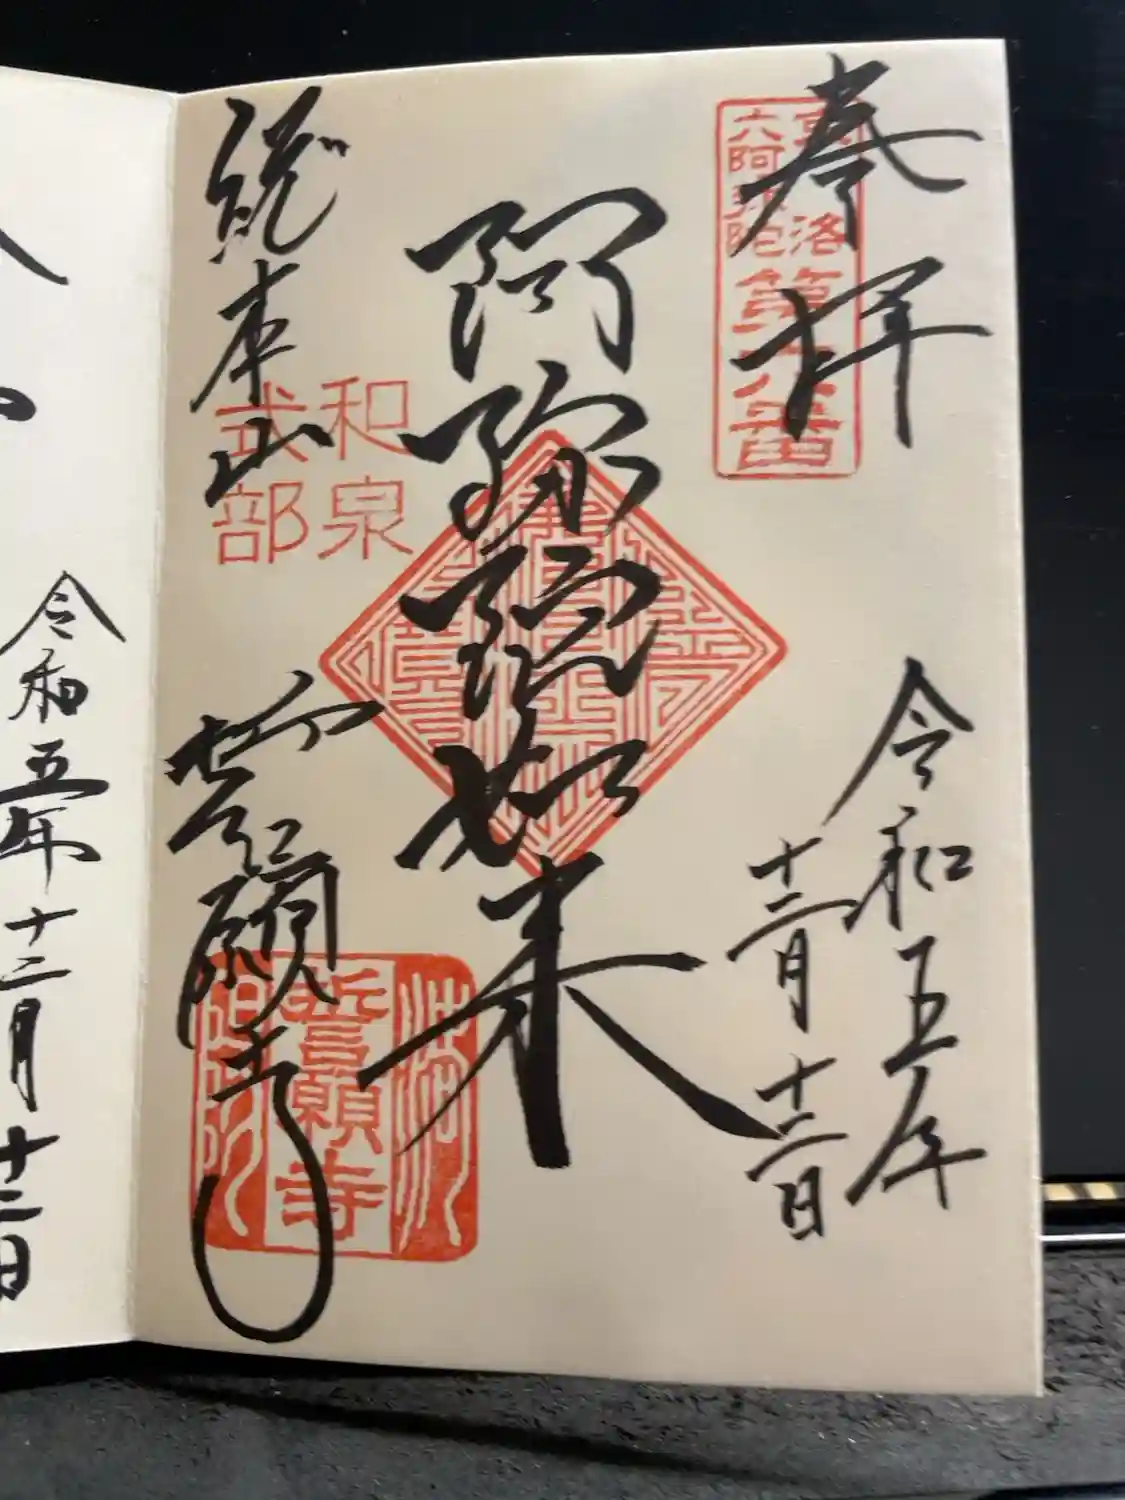 奉拝
京洛
六阿弥陀
第六番
令和五年
十二月十二日
阿弥陀如来
和泉
式部
総本山
誓願寺
誓願寺
令和五年十二月十二日